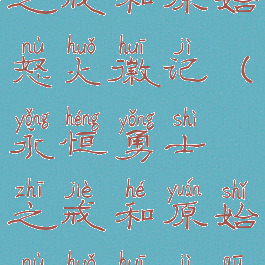 之戒和原始
nù huǒ huī jì
怒火徽记（
yǒng héng yǒng shì
永恒勇士
zhī jiè hé yuán shǐ
之戒和原始
nù huǒ huī jì